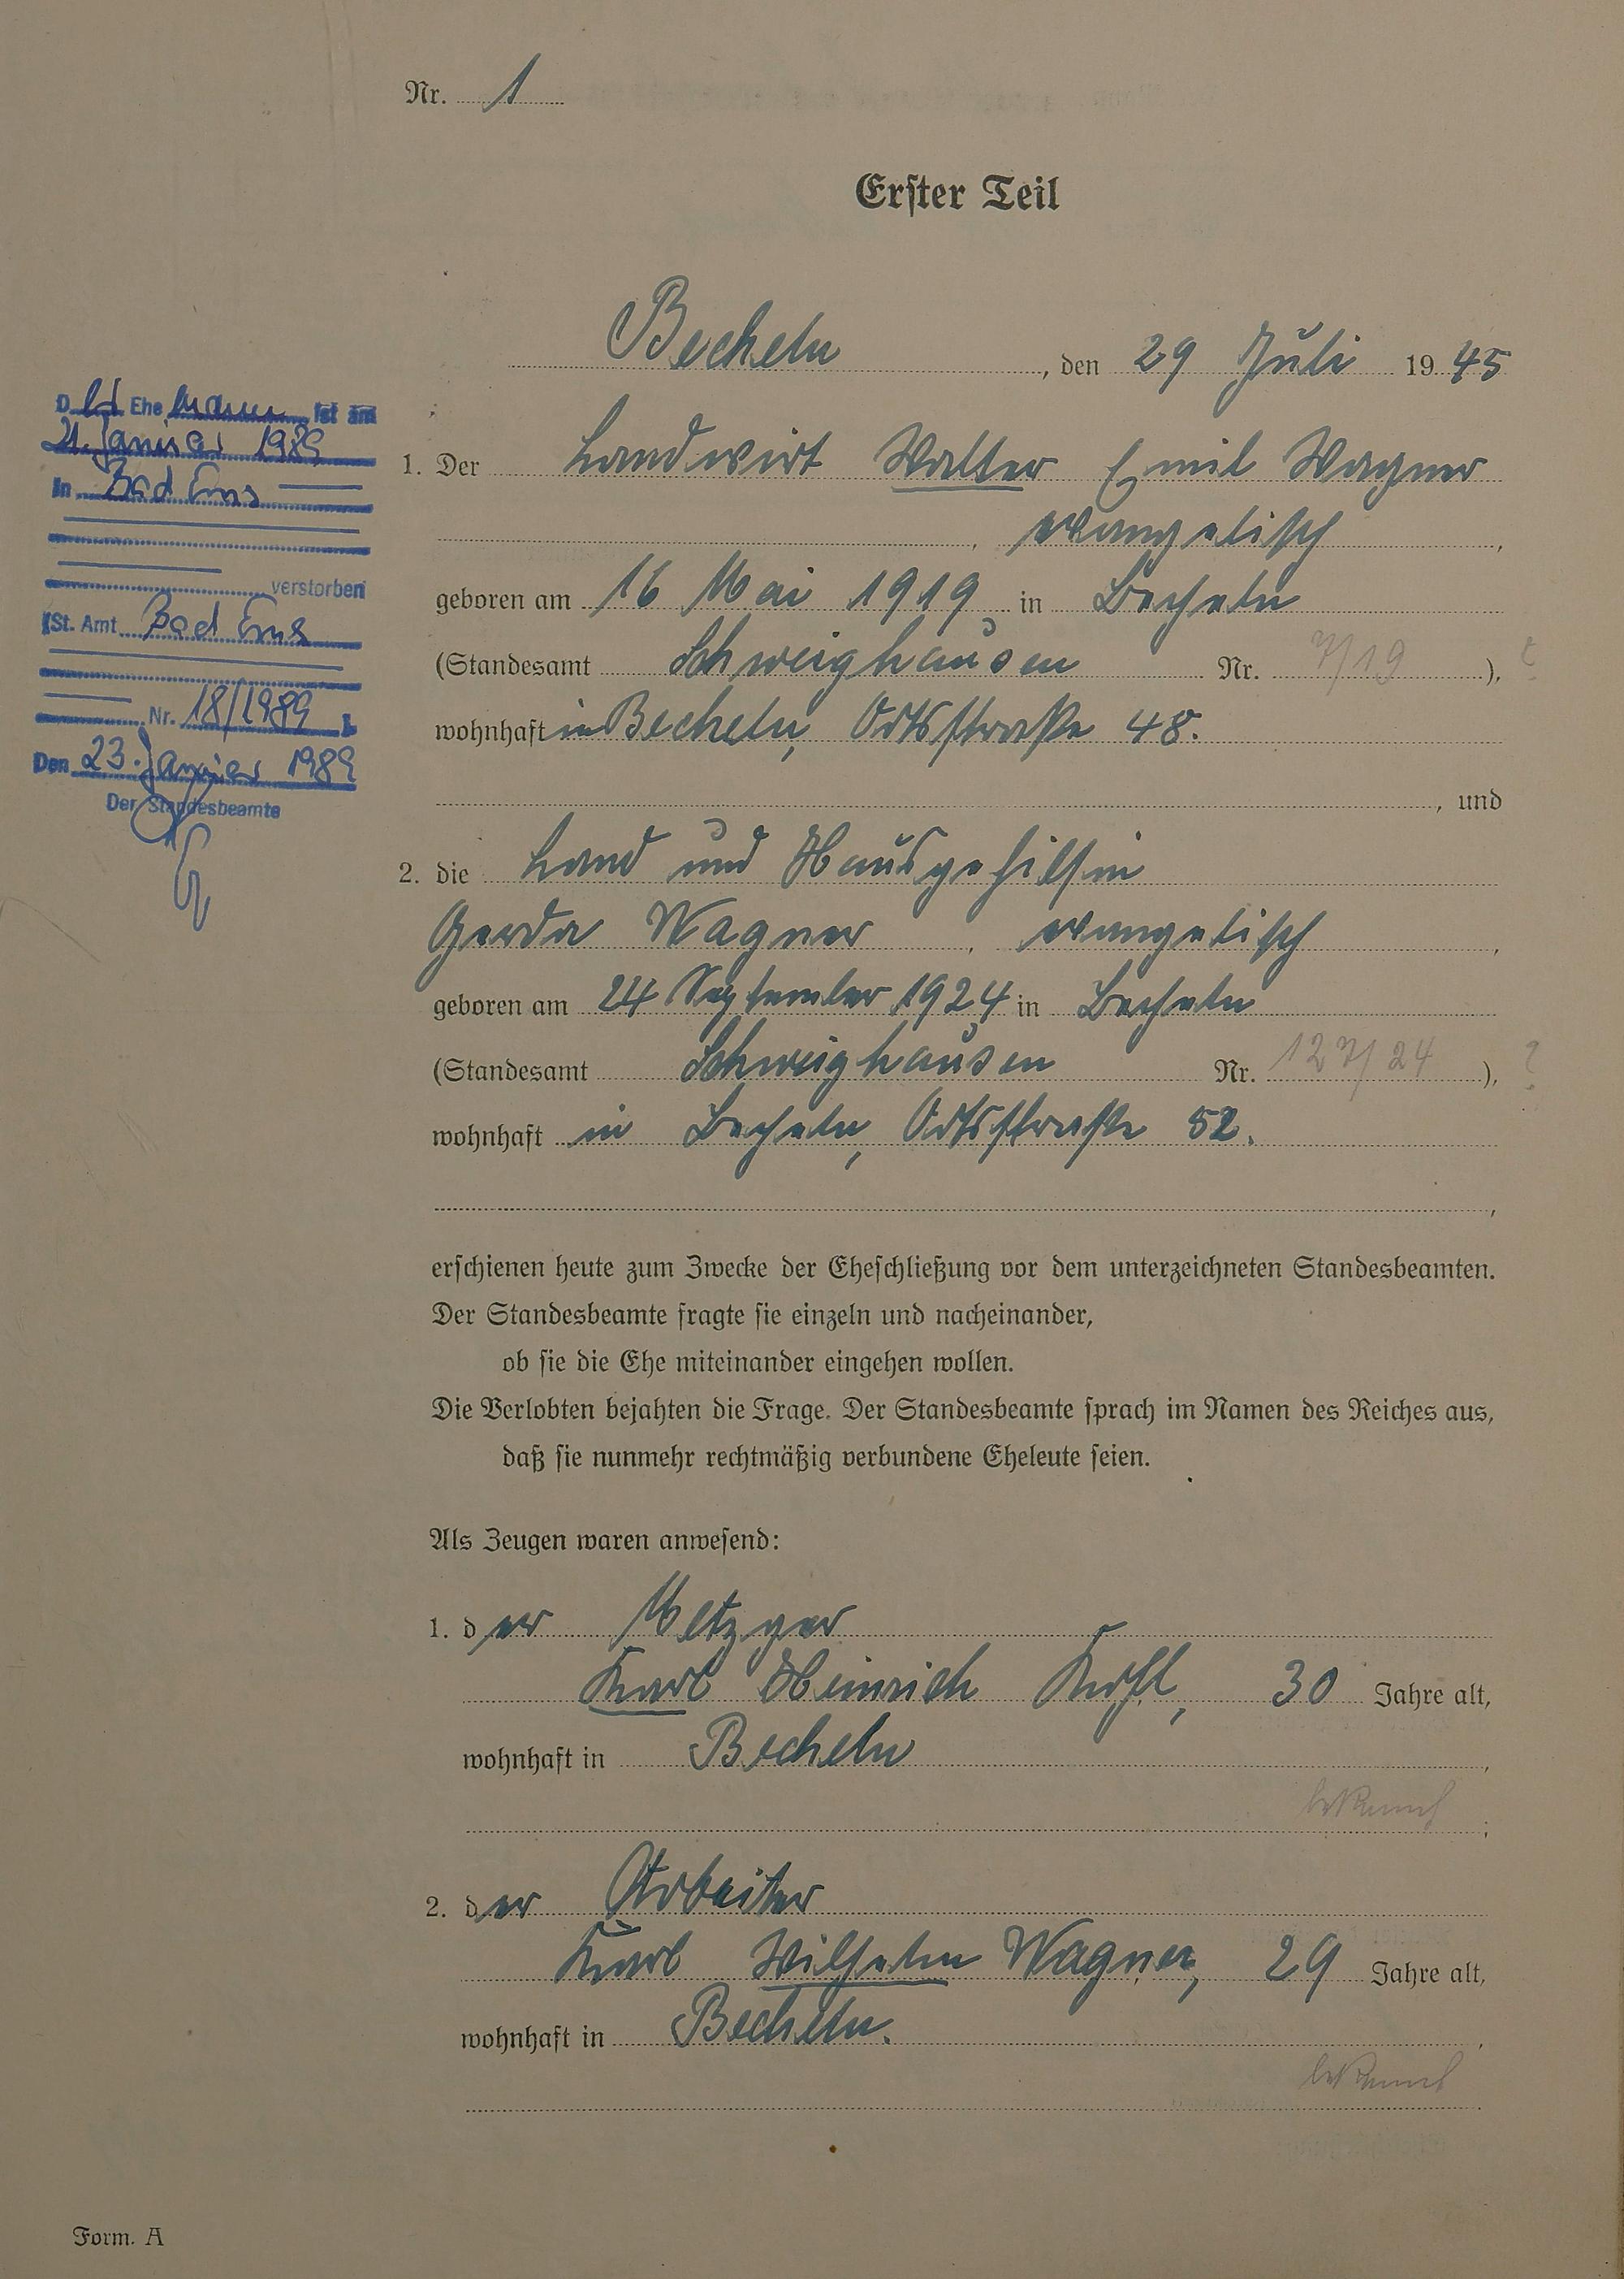 Nr. 1
Erster Teil
Becheln, den 29 Juli 1945
1. Der Landwirt Walter Emil Wagner
, evangelisch,
geboren am 16 Mai 1919 in Becheln
(Standesamt Schweighausen Nr. 7/19), ?
wohnhaft in Becheln, Ortsstraße 48.
, und
2. die Land und Hausgehilfin
Gerda Wagner, evangelisch,
geboren am 24 September 1924 in Becheln
(Standesamt Schweighausen Nr. 127/24), ?
wohnhaft in Becheln, Ortsstraße 52.
,
erschienen heute zum Zwecke der Eheschließung vor dem unterzeichneten Standesbeamten.
Der Standesbeamte fragte sie einzeln und nacheinander,
ob sie die Ehe miteinander eingehen wollen.
Die Verlobten bejahten die Frage. Der Standesbeamte sprach im Namen des Reiches aus,
daß sie nunmehr rechtmäßig verbundene Eheleute seien.
Als Zeugen waren anwesend:
1. der Metzger
Karl Heinrich, 30 Jahre alt,
wohnhaft in Becheln,
bekannt;
2. der Arbeiter
Karl Wilhelm Wagner, 29 Jahre alt,
wohnhaft in Becheln.,
bekannt.
Form. A
Der Ehemann ist am
21. Januar 1989
in Bad Ems
verstorben
(St. Amt Bad Ems
Nr. 18/1989).
Den 23. Januar 1989
Der Standesbeamte